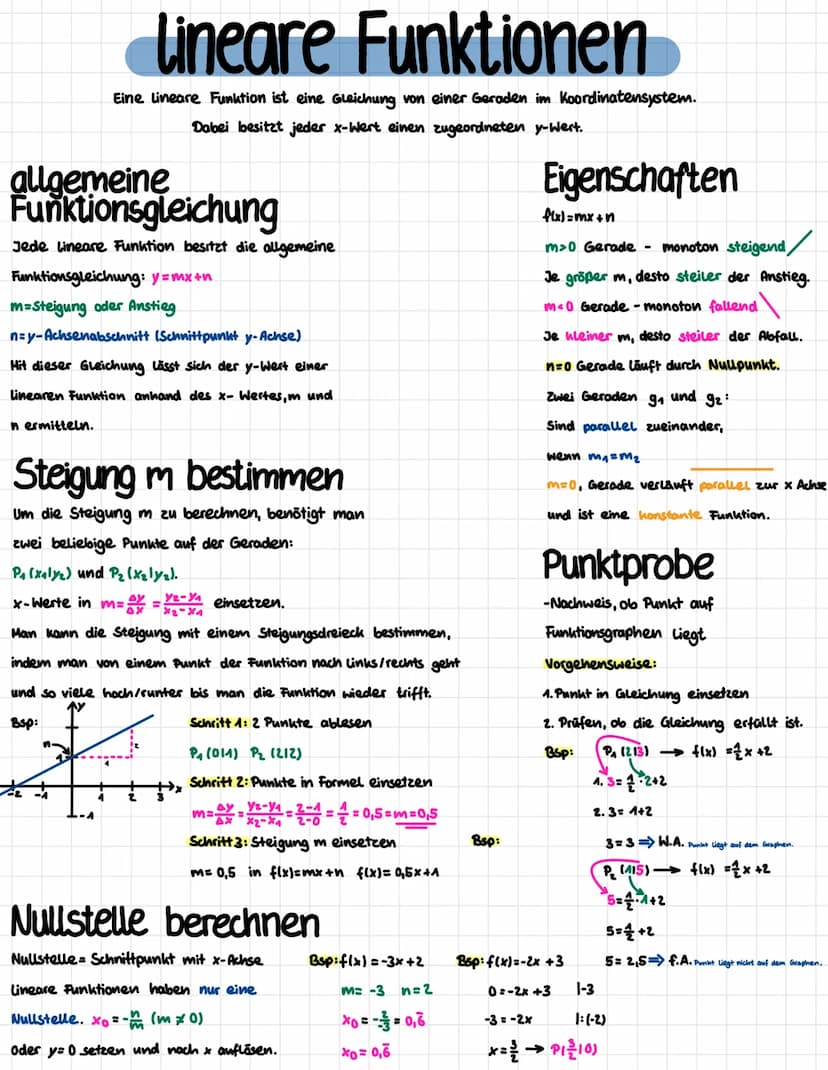 lineare Funktionen
Eine lineare Funktion ist eine Gleichung von einer Geraden im Koordinatensystem.
Dabei besitzt jeder x-Wert einen zugeordneten y-Wert.
allgemeine
Funktionsgleichung
Jede lineare Funktion besitzt die allgemeine
Funktionsgleichung: y=mx+n
m=Steigung oder Anstieg
n=y-Achsenabschnitt (Schnittpunkt y-Achse)
Mit dieser Gleichung lässt sich der y-Wert einer
linearen Funktion anhand des x-Wertes, m und
n ermitteln.
Steigung m bestimmen
Um die Steigung m zu berechnen, benötigt man
zwei beliebige Punkte auf der Geraden:
P₁(x₁|y₂) und P₂(x₂|y₂).
x-Werte in m=Δy/Δx = y₂-y₁/x₂-x₁ einsetzen.
Man kann die Steigung mit einem Steigungsdreieck bestimmen,
indem man von einem Punkt der Funktion nach links/rechts geht
und so viele hoch/runter bis man die Funktion wieder trifft.
Bsp:
y
n
1
1
2
-2 -1 1 2 3 x
-1
Schritt 1: 2 Punkte ablesen
P₁(0|1) P₂(2|2)
Schritt 2: Punkte in Formel einsetzen
m=Δy/Δx = y₂-y₁/x₂-x₁ = 2-1/2-0 = 1/2 = 0,5 =m=0,5
Schritt 3: Steigung m einsetzen
m= 0,5 in f(x)=mx+n f(x)= 0,5x+1
Nullstelle berechnen
Nullstelle= Schnittpunkt mit x-Achse
lineare Funktionen haben nur eine
Nullstelle. x₀=-n/m (m≠0)
oder y=0 setzen und nach x auflösen.
Bsp: f(x) =-3x+2
m= -3 n=2
x₀= -2/-3 = 0,6̄
x₀= 0,6̄
Bsp: f(x)=-2x +3
0=-2x +3 |-3
-3 = -2x |:(-2)
x=3/2 → P(3/2|0)
Eigenschaften
f(x)=mx+n
m>0 Gerade - monoton steigend
Je größer m, desto steiler der Anstieg.
m<0 Gerade - monoton fallend
Je kleiner m, desto steiler der Abfall.
n=0 Gerade läuft durch Nullpunkt.
Zwei Geraden g₁ und g₂:
Sind parallel zueinander,
wenn m₁=m₂
m=0, Gerade verläuft parallel zur x Achse
und ist eine konstante Funktion.
Punktprobe
-Nachweis, ob Punkt auf
Funktionsgraphen liegt
Vorgehensweise:
1. Punkt in Gleichung einsetzen
2. Prüfen, ob die Gleichung erfällt ist.
Bsp: P₁(2|3) → f(x) =1/2 x +2
1. 3= 1/2·2+2
2. 3= 1+2
Bsp: 3=3 ⇒ W.A. Punkt liegt auf dem Graphen.
P₂(1|5) → f(x) =1/2 x +2
5=1/2·1+2
5=1/2 +2
5= 2,5 ⇒ f.A. Punkt liegt nicht auf dem Graphen.